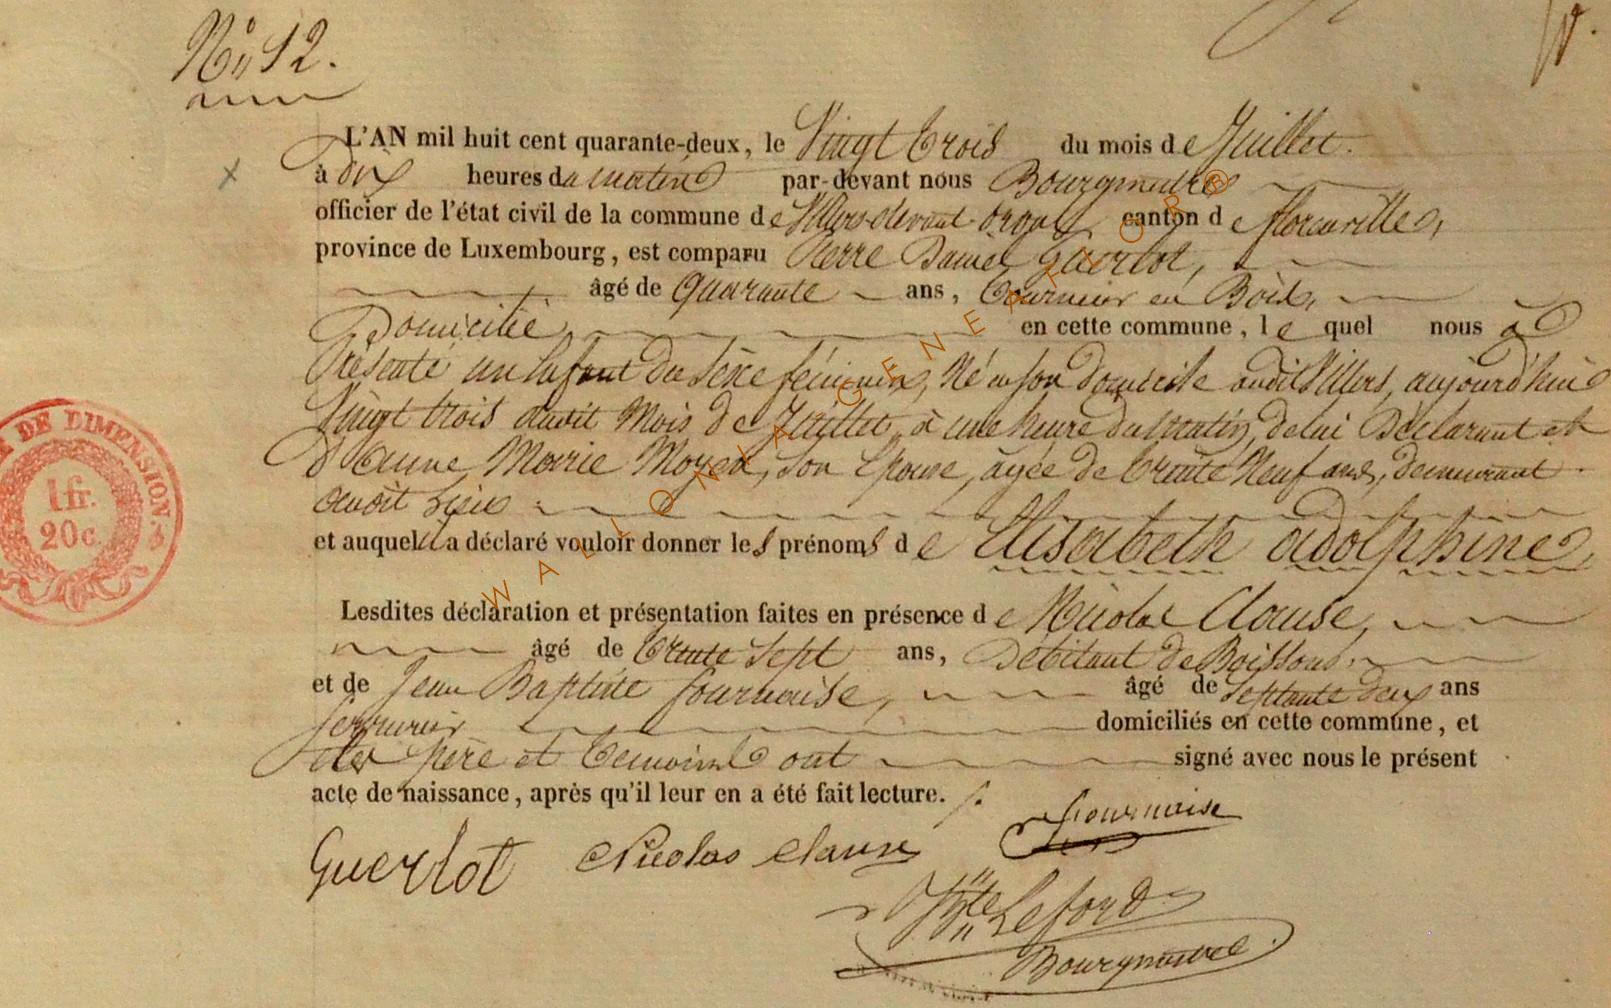 N° 12.
L'AN mil huit cent quarante-deux, le Vingt trois du mois de Juillet.
à dix heures du matin par-devant nous Bourgmestre
officier de l'état civil de la commune de Villers-devant-orval, canton de florenville,
province de Luxembourg, est comparu Pierre Daniel Guerlot,
âgé de Quarante ans, tourneur en Bois,
Domicilié, en cette commune, lequel nous a
Présenté un Enfant du Sexe féminin, Né en son Domicile audit Villers, aujourd'hui
Vingt trois dudit Mois de Juillet, à une heure du matin, de lui Déclarant et
d'anne Marie Moyen, son Epouse, âgée de trente Neuf ans, demeurant
audit Lieu
et auquel il a déclaré vouloir donner les prénoms de Elisabeth adolphine,
Lesdites déclaration et présentation faites en présence de Nicolas Clause,
âgé de trente Sept ans, Débitant de Boissons,
et de Jean Baptiste fournaise, âgé de Septante deux ans
Serrurier domiciliés en cette commune, et
les père et témoins ont signé avec nous le présent
acte de naissance, après qu'il leur en a été fait lecture.
fournaise
Guerlot Nicolas Clause
Leford
Bourgmestre
E DE DIMENSION.
1 fr.
20 c.
WALLONIA GENEALOGY ®